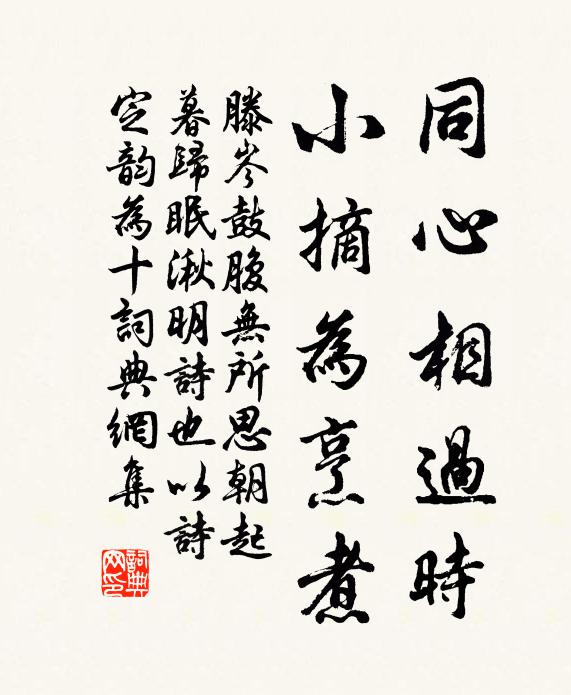 同心相過時
小摘為烹煮
滕岑鼓腹無所思朝起
暮歸眠湫明詩也以詩
定韵為十詞典網集
詞典网印